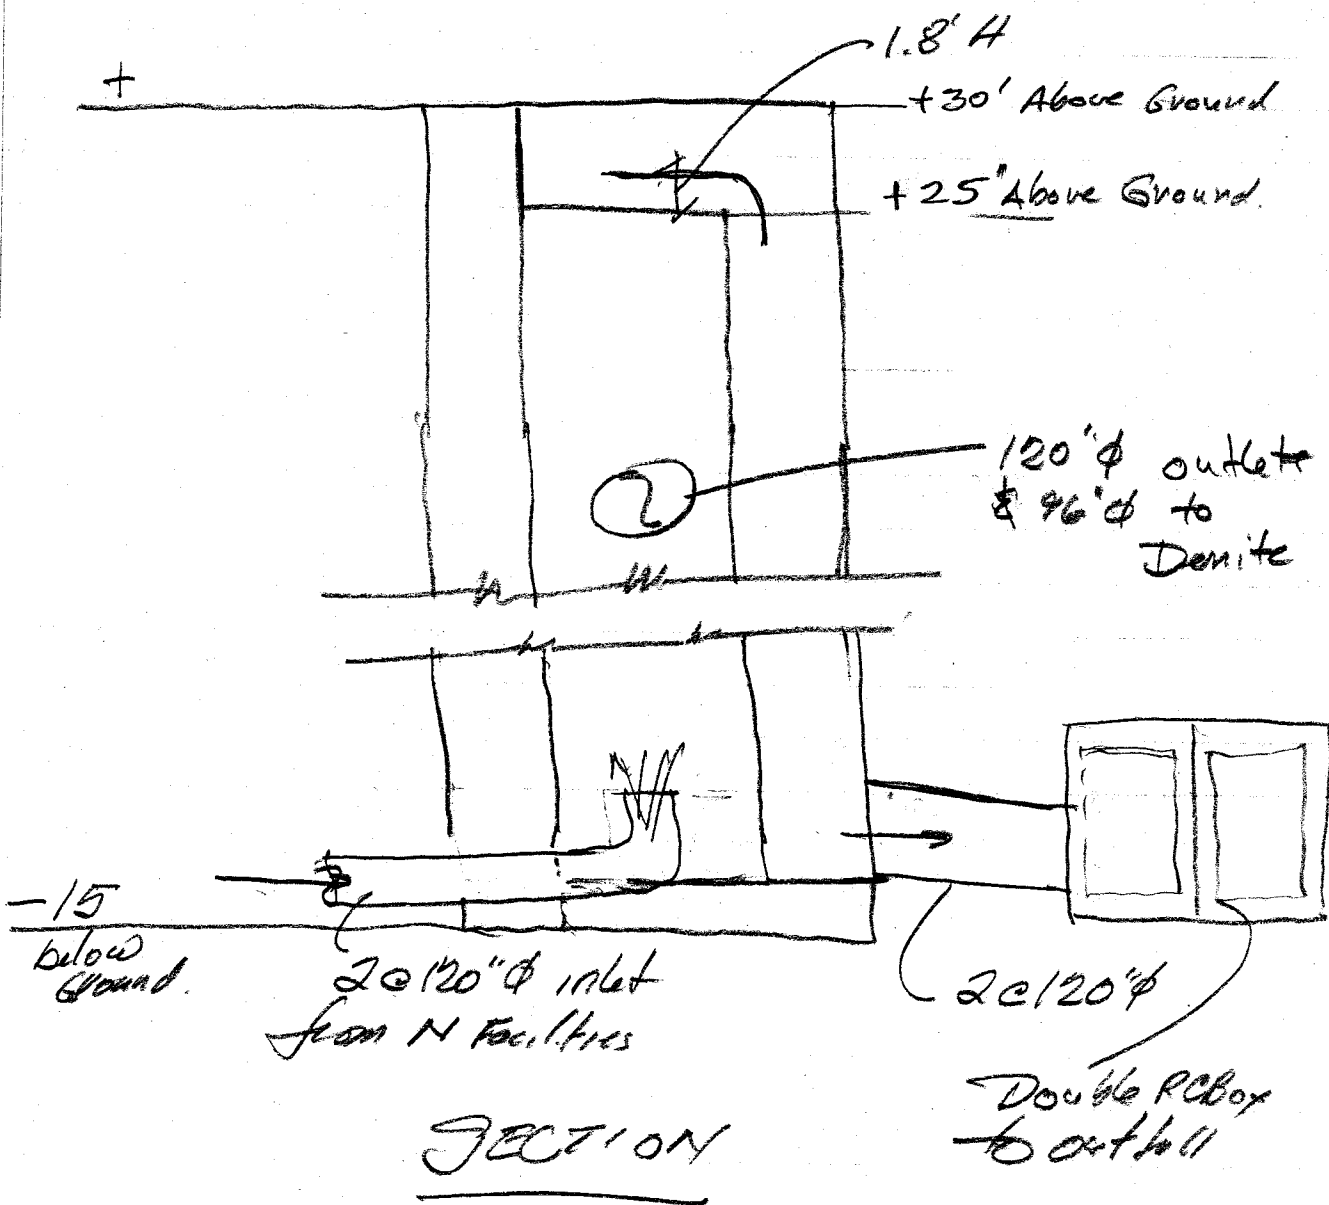 1.8' H
+
+30' Above Ground
+25" Above Ground.
120"φ outlets
& 96"φ to
Denite
-15
below
Ground.
2@120"φ inlet
from N Facilties
2@120"φ
Double RCBox
to outfall
SECTION